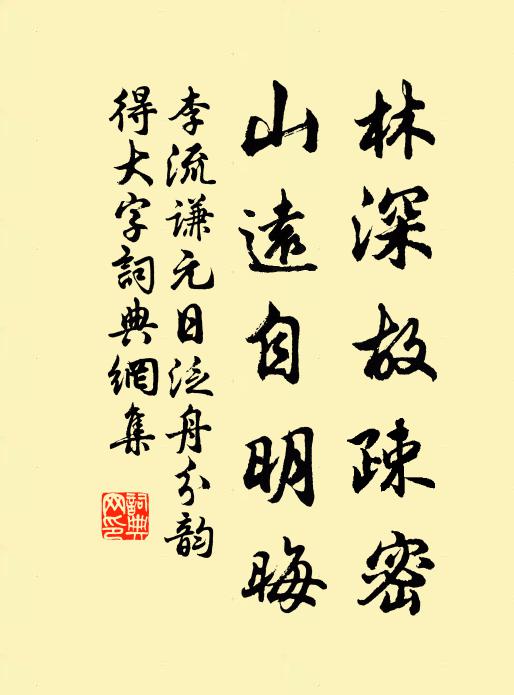 林深故疎密
山遠自明晦
李流謙元日泛舟分韵
得大字詞典網集
詞典
网印